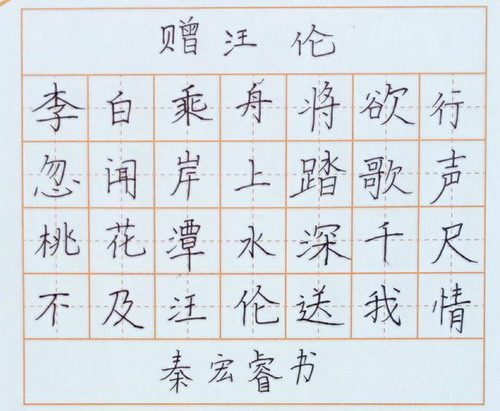 赠汪伦
李白乘舟将欲行
忽闻岸上踏歌声
桃花潭水深千尺
不及汪伦送我情
秦宏睿书